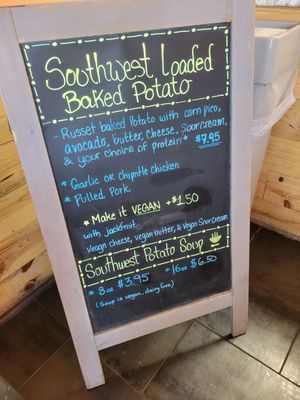 Southwest Loaded
Baked Potato
- Russet baked Potato with corn pico,
avocado, butter, cheese, sour cream,
& your choice of protein * $7.95
* Garlic or chipotle chicken
* Pulled Pork
* Make it VEGAN +$1.50
with jackfruit
vegan cheese, vegan butter, & Vegan Sour Cream
Southwest Potato Soup
* 8oz $3.95 * 16oz $6.50
(Soup is vegan, dairy free)